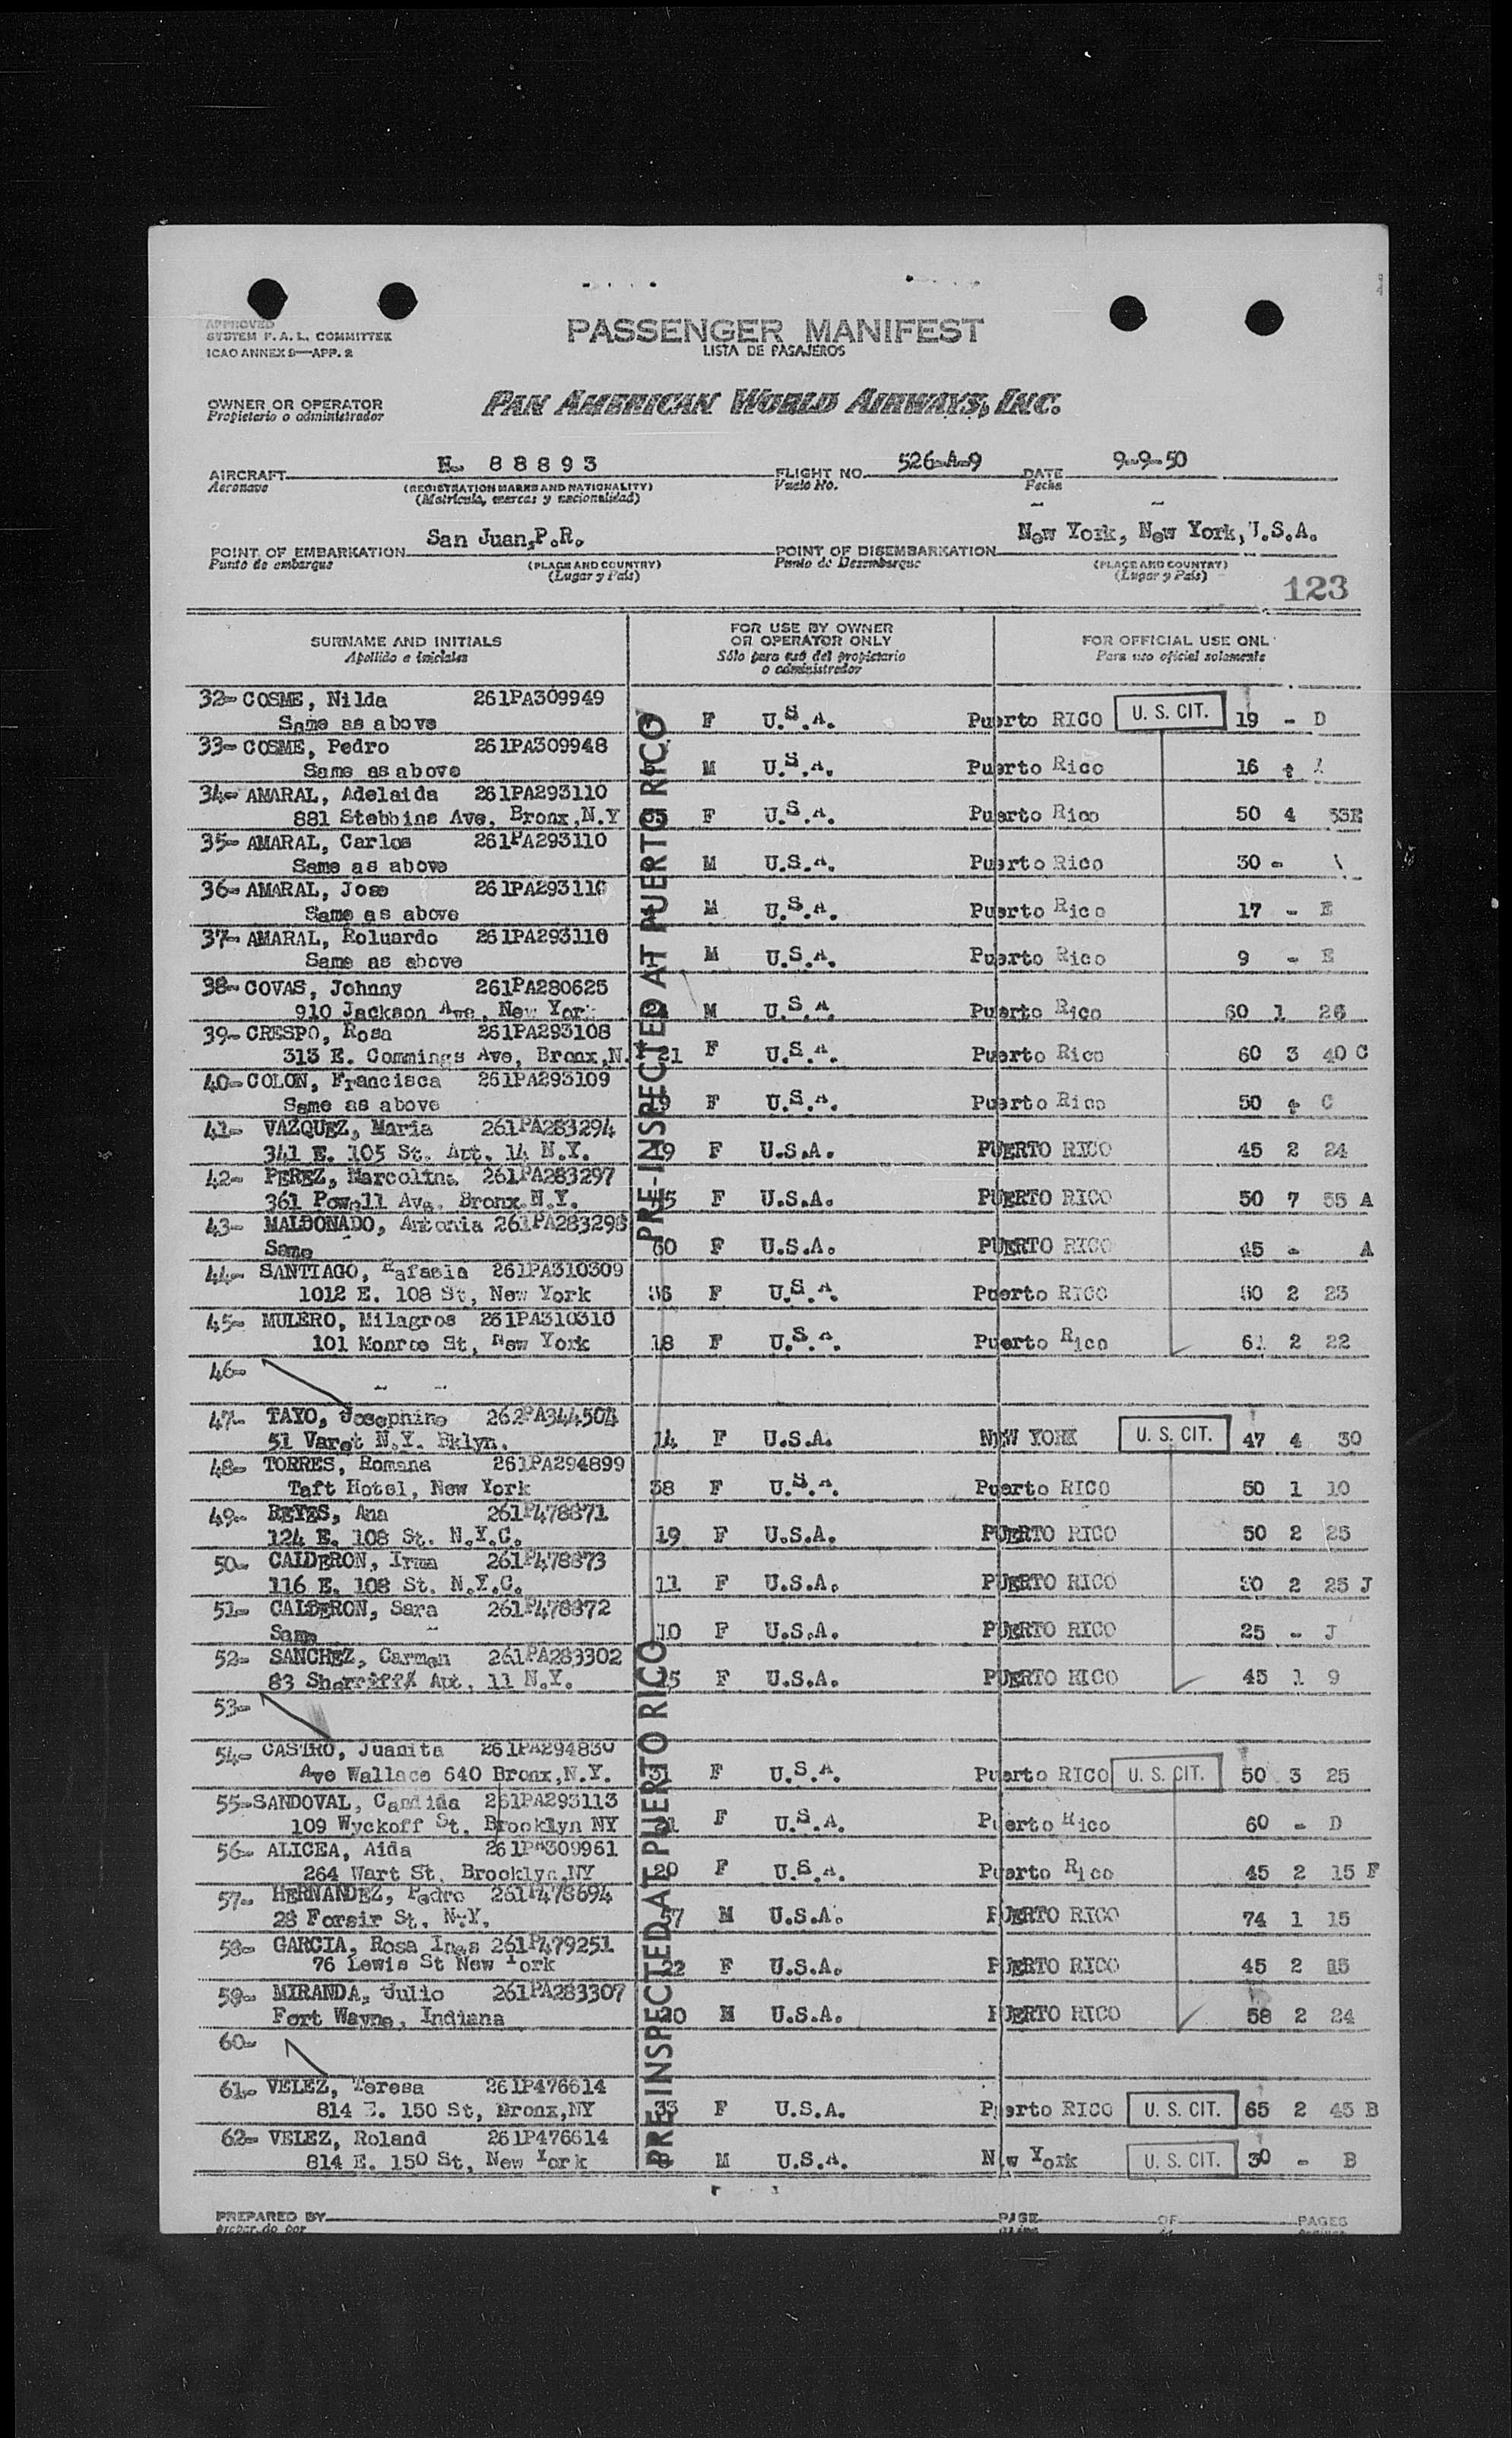 APPROVED
SYSTEM F.A.L. COMMITTEE
ICAO ANNEX 9—APP. 2
PASSENGER MANIFEST
LISTA DE PASAJEROS
OWNER OR OPERATOR
Propietario o administrador
PAN AMERICAN WORLD AIRWAYS, INC.
AIRCRAFT N. 88893 FLIGHT NO. 526-A-9 DATE 9-9-50
Aeronave (REGISTRATION MARKS AND NATIONALITY) Vuelo No. Fecha
(Matrícula, marcas y nacionalidad)
POINT OF EMBARKATION San Juan, P.R. POINT OF DISEMBARKATION New York, New York, U.S.A.
Punto de embarque (PLACE AND COUNTRY) Punto de Desembarque (PLACE AND COUNTRY)
(Lugar y País) (Lugar y País)
123
SURNAME AND INITIALS FOR USE BY OWNER OR OPERATOR ONLY FOR OFFICIAL USE ONL
Apellido e iniciales Sólo para uso del propietario o administrador Para uso oficial solamente
PRE-INSPECTED AT PUERTO RICO
32- COSME, Nilda 261PA309949
Same as above F U.S.A. Puerto RICO U. S. CIT. 19 - D
33- COSME, Pedro 261PA309948
Same as above M U.S.A. Puerto Rico 16
34- AMARAL, Adelaida 261PA293110
881 Stebbins Ave, Bronx,N.Y F U.S.A. Puerto Rico 50 4 53E
35- AMARAL, Carlos 261PA293110
Same as above M U.S.A. Puerto Rico 30 -
36- AMARAL, Jose 261PA293110
Same as above M U.S.A. Puerto Rico 17 - E
37- AMARAL, Roluardo 261PA293110
Same as above M U.S.A. Puerto Rico 9 - E
38- COVAS, Johnny 261PA280625
910 Jackson Ave, New York M U.S.A. Puerto Rico 60 1 26
39- CRESPO, Rosa 261PA293108
313 E. Commings Ave, Bronx,N. 21 F U.S.A. Puerto Rico 60 3 40 C
40- COLON, Francisca 261PA293109
Same as above F U.S.A. Puerto Rico 50 C
41- VAZQUEZ, Maria 261PA283294
341 E. 105 St. Apt. 14 N.Y. 19 F U.S.A. PUERTO RICO 45 2 24
42- PEREZ, Marcolina 261PA283297
361 Powell Ave. Bronx N.Y. F U.S.A. PUERTO RICO 50 7 55 A
43- MALDONADO, Antonia 261PA283298
Same 60 F U.S.A. PUERTO RICO 45 - A
44- SANTIAGO, Rafaela 261PA310309
1012 E. 108 St, New York 36 F U.S.A. Puerto RICO 50 2 23
45- MULERO, Milagros 261PA310310
101 Monroe St, New York 18 F U.S.A. Puerto Rico 61 2 22
46-
47- TAYO, Josephine 262PA344504
51 Varet N.Y. Bklyn. 14 F U.S.A. NEW YORK U. S. CIT. 47 4 30
48- TORRES, Romana 261PA294899
Taft Hotel, New York 38 F U.S.A. Puerto RICO 50 1 10
49- REYES, Ana 261P478871
124 E. 108 St. N.Y.C. 19 F U.S.A. PUERTO RICO 50 2 25
50- CALDERON, Irma 261P478873
116 E. 108 St. N.Y.C. 11 F U.S.A. PUERTO RICO 30 2 25 J
51- CALDERON, Sara 261P478872
Same 10 F U.S.A. PUERTO RICO 25 - J
52- SANCHEZ, Carmen 261PA283302
83 Sherriff Apt. 11 N.Y. F U.S.A. PUERTO RICO 45 1 9
53-
PRE-INSPECTED AT PUERTO RICO
54- CASTRO, Juanita 261PA294830
Ave Wallace 640 Bronx,N.Y. 31 F U.S.A. Puerto RICO U. S. CIT. 50 3 25
55- SANDOVAL, Candida 261PA293113
109 Wyckoff St. Brooklyn NY F U.S.A. Puerto Rico 60 - D
56- ALICEA, Aida 261PA309961
264 Wart St. Brooklyn,NY 20 F U.S.A. Puerto Rico 45 2 15 F
57- HERNANDEZ, Pedro 261P478694
28 Forsir St. N.Y. 57 M U.S.A. PUERTO RICO 74 1 15
58- GARCIA, Rosa Ines 261P479251
76 Lewis St New York 22 F U.S.A. PUERTO RICO 45 2 15
59- MIRANDA, Julio 261PA283307
Fort Wayne, Indiana M U.S.A. PUERTO RICO 58 2 24
60-
61- VELEZ, Teresa 261P476614
814 E. 150 St, Bronx,NY 33 F U.S.A. Puerto RICO U. S. CIT. 65 2 45 B
62- VELEZ, Roland 261P476614
814 E. 150 St, New York M U.S.A. New York U. S. CIT. 30 - B
PREPARED BY PAGE OF PAGES